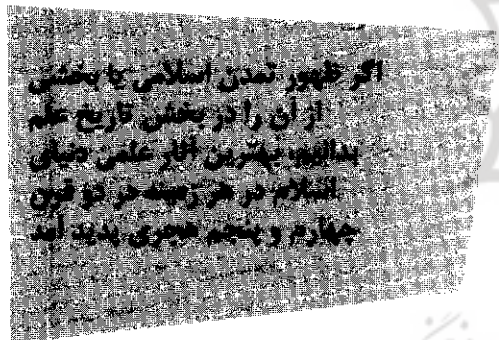 اگر ظهور تمدن اسلامی یا بخشی
از آن را در بخش تاریخ علم
بدانیم، بهترین آثار علمی دنیای
اسلام در هر زمینه در دو قرن
چهارم و پنجم هجری پدید آمد